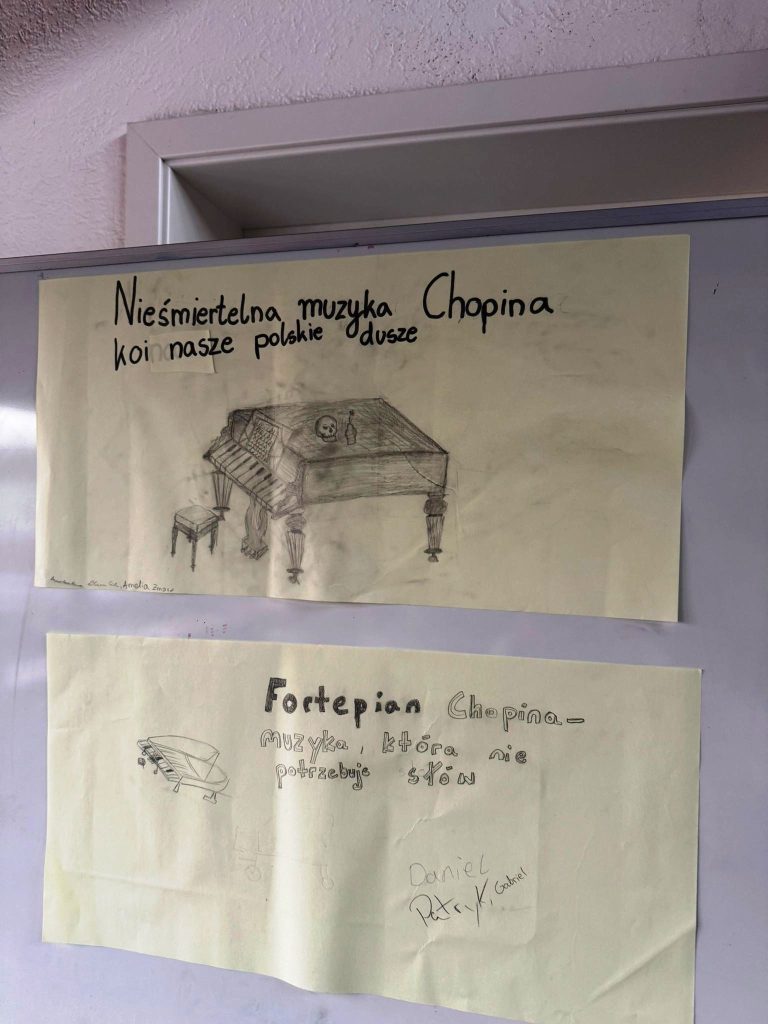 Nieśmiertelna muzyka Chopina
koi nasze polskie dusze
Amelia
Fortepian Chopina-
muzyka, która nie
potrzebuje słów
Daniel
Patryk, Gabriel